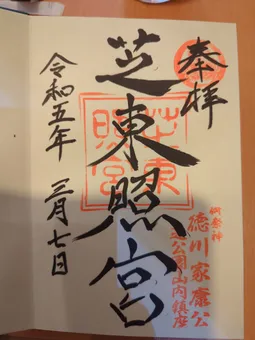 奉拝
御祭神
徳川家康公
芝公園山内鎮座
芝東照宮
芝東照宮
令和五年 三月七日